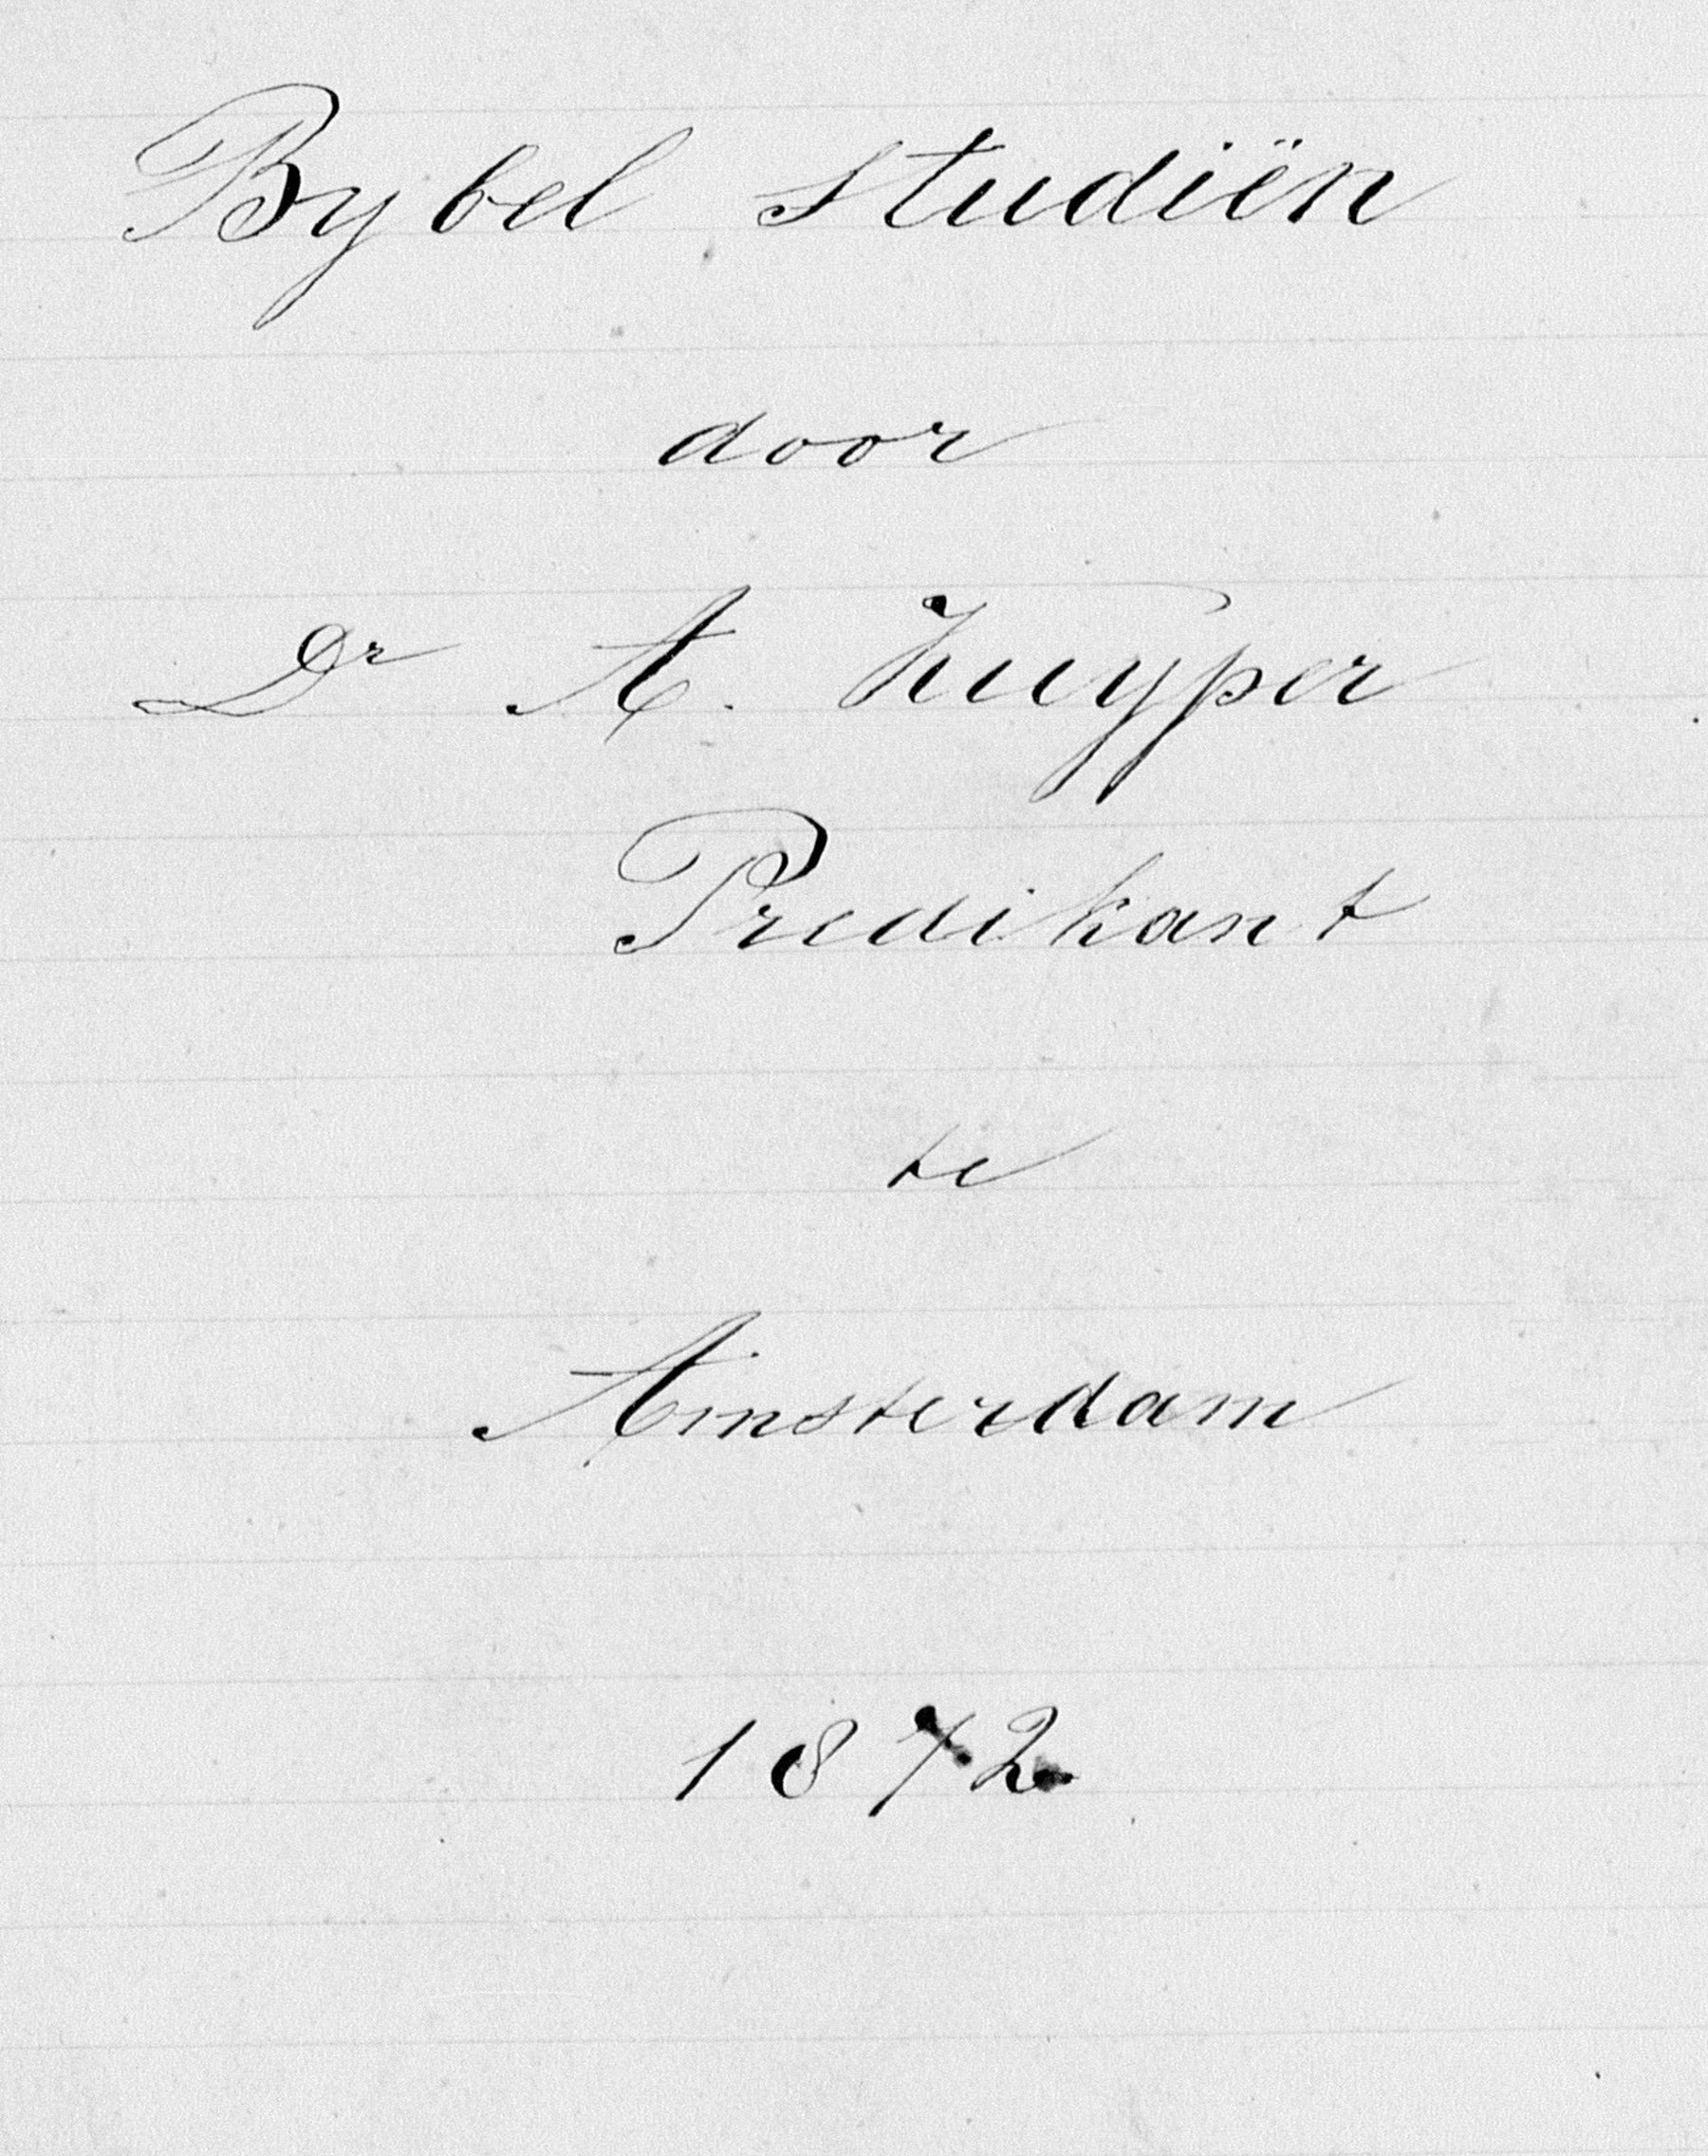 Bybel studiën
door
Dr A. Kuyper
Predikant
te
Amsterdam
1872